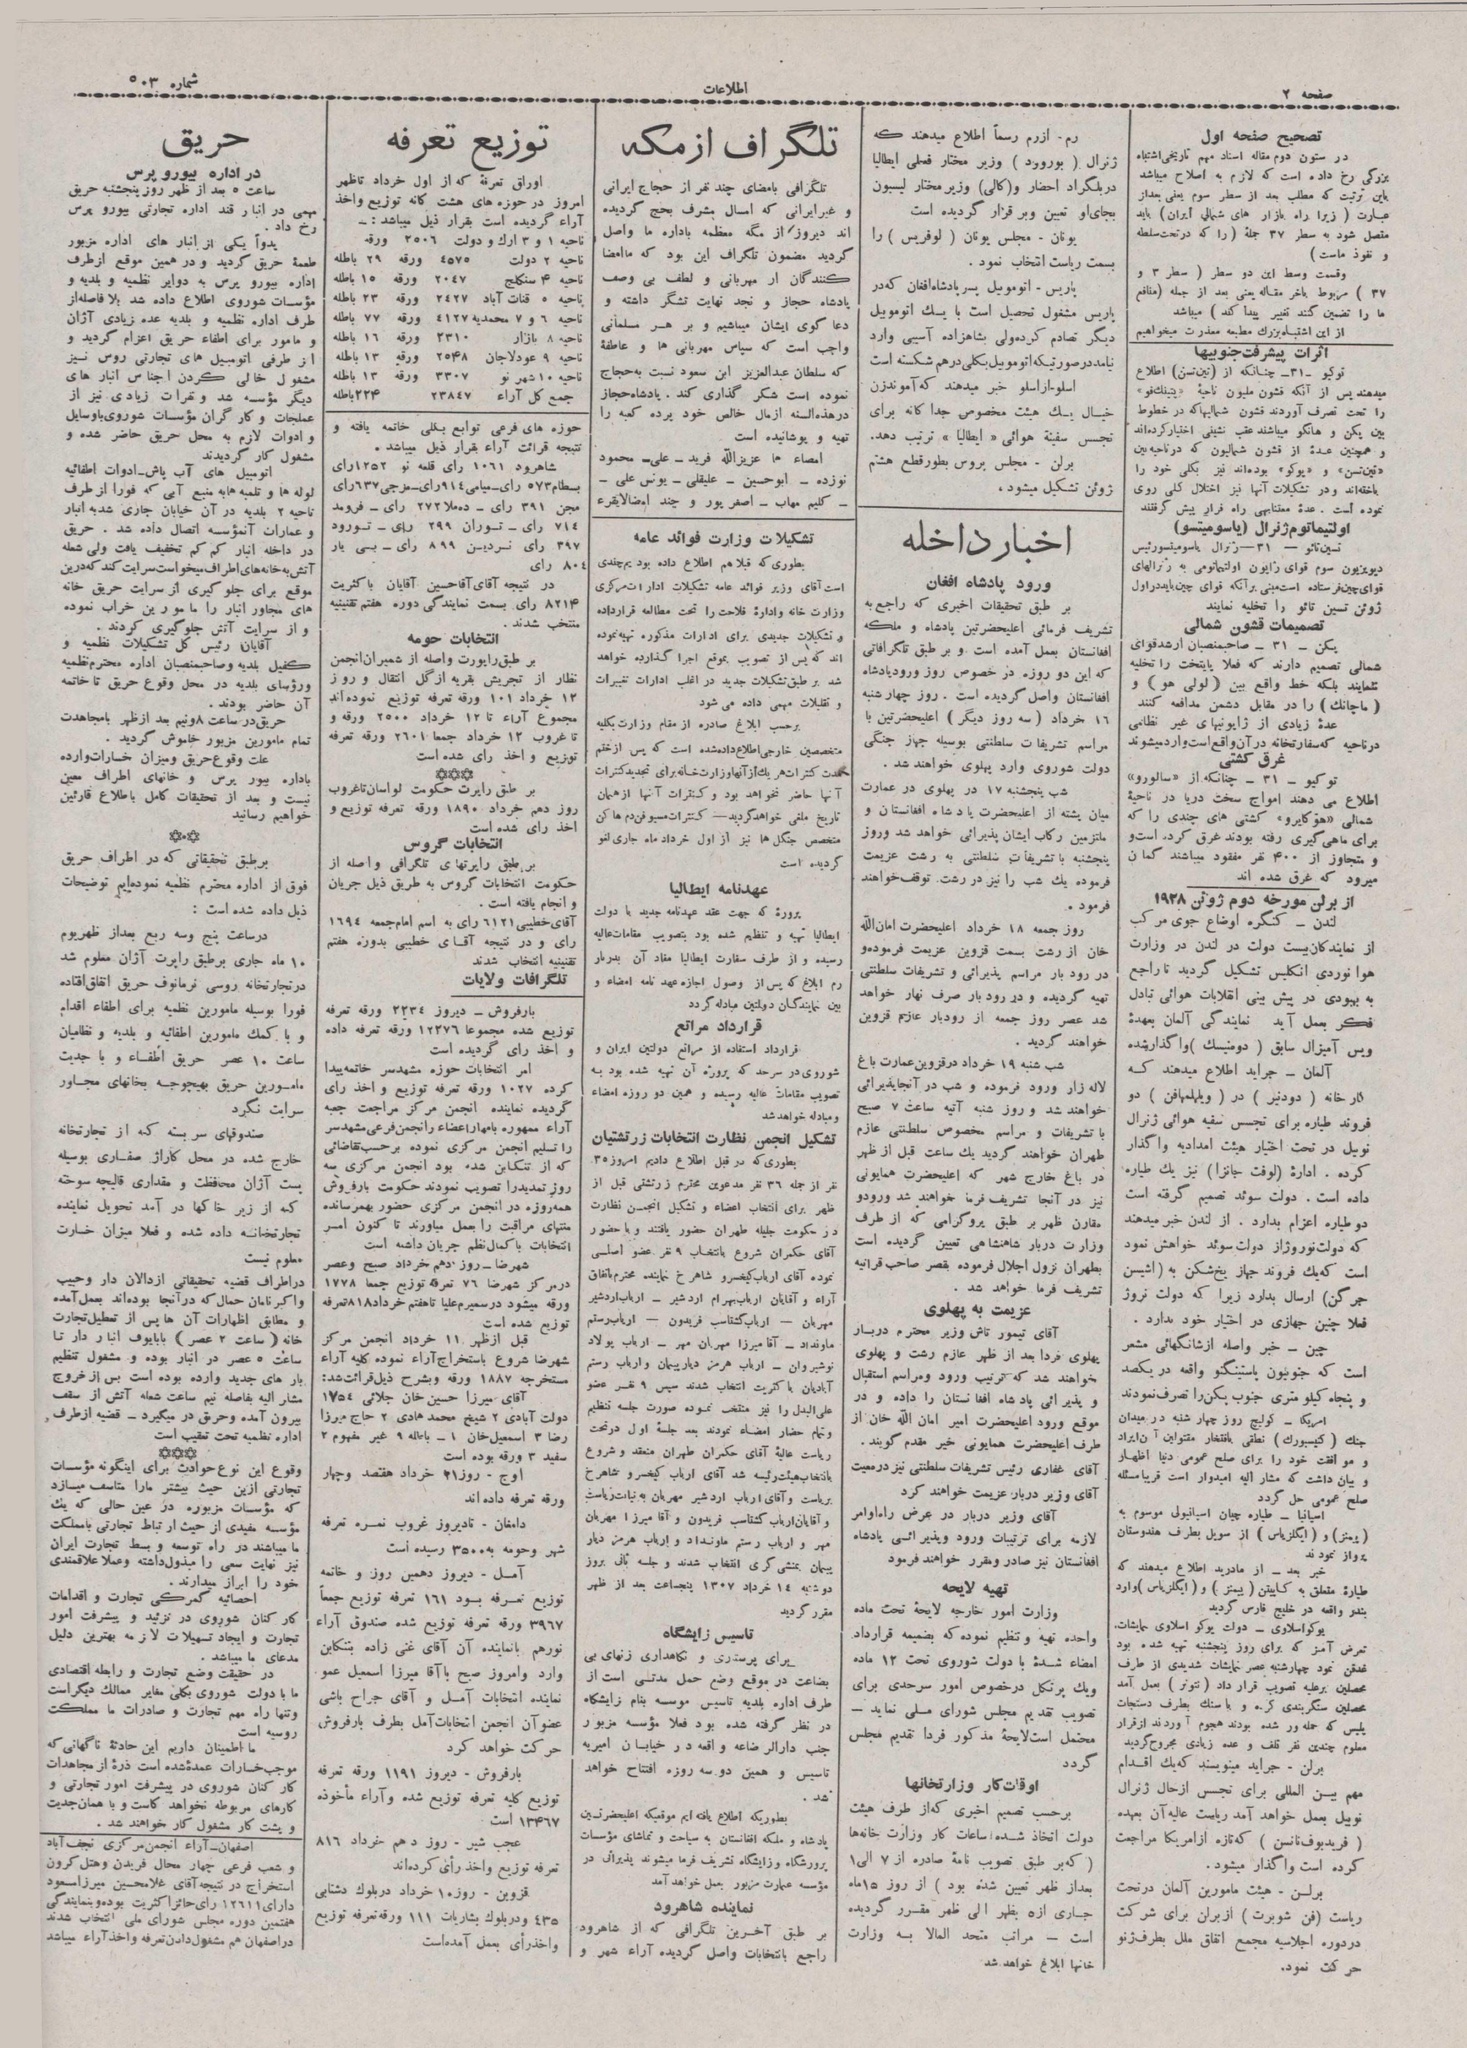 صفحه ۲
اطلاعات
شماره ۵۰۳
تصحیح صفحه اول
در ستون دوم مقاله اسناد مهم تاریخی اشتباه
بزرگی رخ داده است که لازم به اصلاح میباشد
باین ترتیب که مطلب بعد از سطر سوم یعنی بعداز
عبارت ( زیرا راه بازار های شمالی ایران) باید
متصل شود به سطر ۳۷ جملهٔ ( را که در تحت سلطه
و نفوذ ماست )
وقسمت وسط این دو سطر ( سطر ۳ و
۳۷ ) مربوط باخر مقاله یعنی بعد از جمله (منافع
ما را تضمین کنند تغییر پیدا کند ) میباشد
از این اشتباه بزرك مطبعه معذرت میخواهیم
اثرات پیشرفت جنوبیها
توکیو -۳۱- چنانکه از (تین تسن) اطلاع
میدهند پس از آنکه قشون ملیون ناحیهٔ
را تحت تصرف آوردند قشون شمالیها که در خطوط
بین پکن و هانکو میباشند عقب نشینی اختیار کرده اند
و همچنین عدهٔ از قشون شمالیون که در ناحیه بین
«تین تسن» و «پوکو» بوده اند نیز بکلی خود را
باخته اند و در تشکیلات آنها نیز اختلال کلی روی
نموده است . عدهٔ معتنابهی راه فرار پیش گرفتند
اولتیماتوم ژنرال (یاسومیتسو)
تسین تائو – ۳۱ – ژنرال یاسومیتسو رئیس
دیویزیون سوم قوای ژاپون اولتیماتومی به ژنرالهای
قوای چین فرستاده است مبنی بر آنکه قوای چین باید در اول
ژوئن تسین تائو را تخلیه نمایند
تصمیمات قشون شمالی
پکن – ۳۱ – صاحبمنصبان ارشد قوای
شمالی تصمیم دارند که فعلا پایتخت را تخلیه
ننمایند بلکه خط واقع بین ( لولی هو ) و
( ماچانك ) را در مقابل دشمن مدافعه کنند
عدهٔ زیادی از ژاپونیهای غیر نظامی
در ناحیه که سفارتخانه در آن واقع است وارد میشوند
غرق کشتی
توکیو – ۳۱ – چنانکه از «سالورو»
اطلاع می دهند امواج سخت دریا در ناحیهٔ
شمالی «هوکایرو» کشتی های چندی را که
برای ماهی گیری رفته بودند غرق کرده است و
و متجاوز از ۴۰۰ نفر مفقود میباشند گمان
میرود که غرق شده اند
از برلن مورخه دوم ژوئن ۱۹۲۸
لندن – کنگره اوضاع جوی مرکب
از نمایندگان بیست دولت در لندن در وزارت
هوا نوردی انگلیس تشکیل گردید تا راجع
به بهبودی در پیش بینی انقلابات هوائی تبادل
فکر بعمل آید نمایندگی آلمان بعهدهٔ
ویس آمیزال سابق ( دومنیسك ) واگذار شده
آلمان – جراید اطلاع میدهند که
کار خانه ( دودنیز ) در ( ویلهلمهافن ) دو
فروند طیاره برای تجسس سفیه هوائی ژنرال
نوبیل در تحت اختیار هیئت امدادیه واگذار
کرده . ادارهٔ (لوفت هانزا) نیز یك طیاره
داده است . دولت سوئد تصمیم گرفته است
دو طیاره اعزام بدارد . از لندن خبر میدهند
که دولت نوروژ از دولت سوئد خواهش نمود
است که یك فروند جهاز یخ شکن به (اشپین
جرگن) ارسال بدارد زیرا که دولت نروژ
فعلا چنین جهازی در اختیار خود ندارد .
چین – خبر واصله از شانگهائی مشعر
است که جنوبیون باستینگتو واقعه در یکصد
و پنجاه کیلو متری جنوب پکن را تصرف نمودند
امریکا – کولیج روز چهار شنبه در میدان
جنك ( گتیسبورك ) نطقی بافتخار مقتولین آن ایراد
و موافقت خود را برای صلح عمومی دنیا اظهار
و بیان داشت که مشار الیه امیدوار است قریبا مسئله
صلح عمومی حل گردد
اسپانیا – طیاره چیان اسپانیولی موسوم به
(یمنز) و (ایگلزیاس) از سویل بطرف هندوستان
پرواز نمودند
خبر بعد – از مادرید اطلاع میدهند که
طیارهٔ متعلق به کاپیتن (یمنز) و (ایگلزیاس) وارد
بندو واقعه در خلیج فارس گردید
یوکو اسلاوی – دولت یوکو اسلاوی نمایشات
تعرض آمیز که برای روز پنجشنبه تهیه شده بود
غدقن نمود چهارشنبه عصر نمایشات شدیدی از طرف
محصلین برعلیه تصویب قرار داد ( نتونر ) بعمل آمد
محصلین سنگربندی کرده و با سنك بطرف دستجات
پلیس که حمله ور شده بودند هجوم آوردند از قرار
معلوم چندین نفر تلف و عده زیادی مجروح گردید
برلن – جراید مینویسند که یك اقدام
مهم بین المللی برای تجسس از حال ژنرال
نوبیل بعمل خواهد آمد ریاست عالیه آن بعهده
( فریدیوف نانسن ) که تازه از امریکا مراجعت
کرده است واگذار میشود .
برلن – هیئت مامورین آلمان در تحت
ریاست (فن شوبرت) از برلن برای شرکت
در دوره اجلاسیه مجمع اتفاق ملل بطرف ژنو
حرکت نمود.
رم- از رم رسماً اطلاع میدهند که
ژنرال ( بوررود ) وزیر مختار فعلی ایطالیا
در بلگراد احضار و(کالی) وزیر مختار لیسبون
بجای او تعیین و بر قرار گردیده است
یونان – مجلس یونان ( لوفریس ) را
بسمت ریاست انتخاب نمود .
پاریس – اتوموبیل پسر پادشاه افغان که در
پاریس مشغول تحصیل است با یك اتوموبیل
دیگر تصادم کرده ولی بشاهزاده آسیبی وارد
نیامد در صورتیکه اتوموبیل بکلی درهم شکسته است
اسلو- از اسلو خبر میدهند که آموندزن
خیال یك هیئت مخصوص جداگانه برای
تجسس سفینهٔ هوائی « ایطالیا » ترتیب دهد.
برلن – مجلس پروس بطور قطع هشتم
ژوئن تشکیل میشود .
اخبار داخله
ورود پادشاه افغان
بر طبق تحقیقات اخیری که راجع به
تشریف فرمائی اعلیحضرتین پادشاه و ملکه
افغانستان بعمل آمده است و بر طبق تلگرافاتی
که این دو روزه در خصوص روز ورود پادشاه
افغانستان واصل گردیده است . روز چهار شنبه
۱۶ خرداد ( سه روز دیگر ) اعلیحضرتین با
مراسم تشریفات سلطنتی بوسیله جهاز جنگی
دولت شوروی وارد پهلوی خواهند شد .
شب پنجشنبه ۱۷ در پهلوی در عمارت
میان پشته از اعلیحضرت پادشاه افغانستان و
ملتزمین رکاب ایشان پذیرائی خواهد شد و روز
پنجشنبه با تشریفات سلطنتی به رشت عزیمت
فرموده یك شب را نیز در رشت توقف خواهند
فرمود .
روز جمعه ۱۸ خرداد اعلیحضرت امان الله
خان از رشت بسمت قزوین عزیمت فرموده و
در رود بار مراسم پذیرائی و تشریفات سلطنتی
تهیه گردیده و در رود بار صرف نهار خواهد
شد عصر روز جمعه از رودبار عازم قزوین
خواهند گردید .
شب شنبه ۱۹ خرداد در قزوین عمارت باغ
لاله زار ورود فرموده و شب در آنجا پذیرائی
خواهند شد و روز شنبه آتیه ساعت ۷ صبح
با تشریفات و مراسم مخصوص سلطنتی عازم
طهران خواهند گردید یك ساعت قبل از ظهر
در باغ خارج شهر که اعلیحضرت همایونی
نیز در آنجا تشریف فرما خواهند شد ورود و
مقارن ظهر بر طبق پروگرامی که از طرف
وزارت دربار شاهنشاهی تعیین گردیده است
بطهران نزول اجلال فرموده بقصر صاحب قرانیه
تشریف فرما خواهد شد .
عزیمت به پهلوی
آقای تیمور تاش وزیر محترم دربار
پهلوی فردا بعد از ظهر عازم رشت و پهلوی
خواهند شد که ترتیب ورود و مراسم استقبال
و پذیرائی پادشاه افغانستان را داده و در
موقع ورود اعلیحضرت امیر امان الله خان از
طرف اعلیحضرت همایونی خیر مقدم گویند .
آقای غفاری رئیس تشریفات سلطنتی نیز در معیت
آقای وزیر دربار عزیمت خواهند کرد
آقای وزیر دربار در عرض راه اوامر
لازمه برای ترتیبات ورود و پذیرائی پادشاه
افغانستان نیز صادر و مقرر خواهند فرمود
تهیه لایحه
وزارت امور خارجه لایحهٔ تحت ماده
واحده تهیه و تنظیم نموده که بضمیمه قرارداد
امضاء شدهٔ با دولت شوروی تحت ۱۲ ماده
ویك پرتکل در خصوص امور سرحدی برای
تصویب تقدیم مجلس شورای ملی نماید –
محتمل است لایحهٔ مذکور فردا تقدیم مجلس
گردد
اوقات کار وزارتخانها
برحسب تصمیم اخیری که از طرف هیئت
دولت اتخاذ شده ساعات کار وزارت خانه ها
( که بر طبق تصویب نامهٔ صادره از ۷ الی ۱
بعداز ظهر تعیین شده بود ) از روز ۱۵ ماه
جاری از ۵ بظهر الی ظهر مقرر گردیده
است – مراتب متحد المالا به وزارت
خانها ابلاغ خواهد شد
تلگراف از مکه
تلگرافی بامضای چند نفر از حجاج ایرانی
و غیر ایرانی که امسال بشرف بحج گردیده
اند دیروز از مگه معظمه باداره ما واصل
گردید مضمون تلگراف این بود که ما امضا
کنندگان از مهربانی و لطف بی وصف
پادشاه حجاز و نجد نهایت تشگر داشته و
دعا گوی ایشان میباشیم و بر هر مسلمانی
واجب است که سپاس مهربانی ها و عاطفهٔ
که سلطان عبدالعزیز ابن سعود نسبت به حجاج
نموده است شکر گذاری کند . پادشاه حجاز
در هذه السنه از مال خالص خود پرده کعبه را
تهیه و پوشانیده است
امضاء ها عزیزالله فرید – علی – محمود
نوزده – ابوحسین – علیقلی – یونس علی –
– کلیم مهاب – اصغر پور و چند امضا لایقرء
تشکیلات وزارت فوائد عامه
بطوری که قبلا هم اطلاع داده بودیم چندی
است آقای وزیر فوائد عامه تشکیلات ادارات مرکزی
وزارت خانه وادارهٔ فلاحت را تحت مطالعه قرارداده
و تشکیلات جدیدی برای ادارات مذکوره تهیه نموده
اند که پس از تصویب بموقع اجرا گذارده خواهد
شد بر طبق تشکیلات جدید در اغلب ادارات تغییرات
و نقلبلات مهمی داده می شود
برحسب ابلاغ صادره از مقام وزارت بکلیه
متخصصین خارجی اطلاع داده شده است که پس از ختم
مدت کنترات هریك از آنها وزارت خانه برای تجدید کنترات
آنها حاضر نخواهد بود و کنترات آنها از همان
تاریخ ملغی خواهد گردید – کنترات مسیو فن دم هاکن
متخصص جنگل ها نیز از اول خرداد ماه جاری لغو
گردیده است
عهدنامه ایطالیا
پروژهٔ که جهت عقد عهدنامه جدید با دولت
ایطالیا تهیه و تنظیم شده بود بتصویب مقامات عالیه
رسیده و از طرف سفارت ایطالیا مفاد آن بدربار
رم ابلاغ که پس از وصول اجازه عهد نامه امضاء و
بین نمایندگان دولتین مبادله گردد
قرارداد مراتع
قرارداد استفاده از مراتع دولتین ایران و
شوروی در سرحد که پروژه آن تهیه شده بود به
تصویب مقامات عالیه رسیده و همین دو روزه امضاء
و مبادله خواهد شد
تشکیل انجمن نظارت انتخابات زرتشتیان
بطوری که در قبل اطلاع دادیم امروز ۳۵
نفر از جمله ۳۶ نفر مدعوین محترم زرتشتی قبل از
ظهر برای انتخاب اعضاء و تشکیل انجمن نظارت
در حکومت جلیله طهران حضور یافتند و با حضور
آقای حکمران شروع بانتخاب ۹ نفر عضو اساسی
نموده آقای ارباب کیخسرو شاهرخ نماینده محترم باتفاق
آراء و آقایان ارباب بهرام اردشیر – ارباب اردشیر
مهربان – ارباب گشتاسب فریدون – ارباب رستم
ماونداد – آقا میرزا مهربان مهر – ارباب پولاد
نوشیروان – ارباب هرمز دیار پیمان و ارباب رستم
آبادیان باکثریت انتخاب شدند سپس ۹ نفر عضو
علی البدل را نیز منتخب نموده صورت جلسه تنظیم
و تمام حضار امضاء نمودند بعد جلسهٔ اول در تحت
ریاست عالیهٔ آقای حکمران طهران منعقد و شروع
بانتخاب هیئت رئیسه شد آقای ارباب کیخسرو شاهرخ
بریاست و آقای ارباب اردشیر مهربان به نیابت ریاست
و آقایان ارباب گشتاسب فریدون و آقا میرزا مهربان
مهر و ارباب رستم ماونداد و ارباب هرمز دیار
پیمان بمنشی گری انتخاب شدند و جلسه ثانی بروز
دوشنبه ۱۴ خرداد ۱۳۰۷ پنجساعت بعد از ظهر
مقرر گردید
تاسیس زایشگاه
برای پرستری و نگاهداری زنهای بی
بضاعت در موقع وضع حمل مدتی است از
طرف اداره بلدیه تاسیس موسسه بنام زایشگاه
در نظر گرفته شده بود فعلا مؤسسه مزبور
جنب دارالرضاعه واقعه در خیابان امیریه
تاسیس و همین دو سه روزه افتتاح خواهد
شد .
بطوریکه اطلاع یافته ایم موقعیکه اعلیحضرتین
پادشاه و ملکه افغانستان به سیاحت و تماشای مؤسسات
پرورشگاه و زایشگاه تشریف فرما میشوند پذیرائی در
مؤسسه عمارت مزبور بعمل خواهد آمد
نماینده شاهرود
بر طبق آخرین تلگرافی که از شاهرود
راجع بانتخابات واصل گردیده آراء شهر و
توزیع تعرفه
اوراق تعرفهٔ که از اول خرداد تاظهر
امروز در حوزه های هشت گانه توزیع واخذ
آراء گردیده است بقرار ذیل میباشد: –
ناحیه ۱ و ۳ ارك و دولت ۲۵۰۶ ورقه
ناحیه ۲ دولت ۴۵۷۵ ورقه ۲۹ باطله
ناحیه ۴ سنگلج ۲۰۴۷ ورقه ۱۵ باطله
ناحیه ۵ قنات آباد ۲۴۲۷ ورقه ۲۳ باطله
ناحیه ۶ و ۷ محمدیه ۴۱۲۷ ورقه ۷۷ باطله
ناحیه ۸ بازار ۲۳۱۰ ورقه ۱۶ باطله
ناحیه ۹ عودلاجان ۲۵۴۸ ورقه ۱۳ باطله
ناحیه ۱۰ شهر نو ۳۳۰۷ ورقه ۱۳ باطله
جمع کل آراء ۲۳۸۴۷ ۲۲۴ باطله
حوزه های فرعی توابع بکلی خاتمه یافته و
نتیجه قرائت آراء بقرار ذیل میباشد .
شاهرود ۱۰۶۱ رای قلعه نو ۱۲۵۲ رای
بسطام ۵۷۳ رای – میامی ۹۱۴ رای – مزجی ۶۳۷ رای
مجن ۳۹۱ رای – دهملا ۲۷۲ رای – فرومد
۷۱۴ رای – توران ۲۹۹ رای – تورود
۳۹۷ رای نردین ۸۹۹ رای – بسی یار
۸۰۴ رای
در نتیجه آقای آقا حسین آقایان باکثریت
۸۲۱۴ رای بسمت نمایندگی دوره هفتم تقنینیه
منتخب شدند .
انتخابات حومه
بر طبق راپورت واصله از شمیران انجمن
نظار از تجریش بقریه ازگل انتقال و روز
۱۲ خرداد ۱۰۱ ورقه تعرفه توزیع نموده اند
مجموع آراء تا ۱۲ خرداد ۲۵۰۰ ورقه و
تا غروب ۱۲ خرداد جمعا ۲۶۰۱ ورقه تعرفه
توزیع و اخذ رای شده است
بر طبق راپرت حکومت لواسان تا غروب
روز دهم خرداد ۱۸۹۰ ورقه تعرفه توزیع و
اخذ رای شده است
انتخابات گروس
بر طبق راپرتهای تلگرافی واصله از
حکومت انتخابات گروس به طریق ذیل جریان
و انجام یافته است .
آقای خطیبی ۶۱۲۱ رای به اسم امام جمعه ۱۶۹۴
رای و در نتیجه آقای خطیبی بدوره هفتم
تقنینیه انتخاب شدند
تلگرافات ولایات
بارفروش – دیروز ۲۲۳۴ ورقه تعرفه
توزیع شده مجموعا ۱۲۲۷۶ ورقه تعرفه داده
و اخذ رای گردیده است
امر انتخابات حوزه مشهدسر خاتمه پیدا
کرده ۱۰۲۷ ورقه تعرفه توزیع و اخذ رای
گردیده نماینده انجمن مرکز مراجعت جعبه
آراء ممهوره بامهار اعضاء انجمن فرعی مشهدسر
را تسلیم انجمن مرکزی نموده برحسب تقاضائی
که از تنکابن شده بود انجمن مرکزی سه
روز تمدید را تصویب نمودند حکومت بارفروش
همه روزه در انجمن مرکزی حضور بهمرسانده
منتهای مراقبت را بعمل میاورند تا کنون امر
انتخابات با کمال نظم جریان داشته است
شهرضا – روز دهم خرداد صبح و عصر
در مرکز شهرضا ۷۶ تعرفه توزیع جمعا ۱۷۷۸
ورقه میشود در سمیرم علیا تا هفتم خرداد ۸۱۸ تعرفه
توزیع شده است
قبل از ظهر ۱۱ خرداد انجمن مرکز
شهرضا شروع باستخراج آراء نموده کلیه آراء
مستخرجه ۱۸۸۷ ورقه و بشرح ذیل قرائت شد:
آقای میرزا حسین خان جلائی ۱۷۵۴
دولت آبادی ۲ شیخ محمد هادی ۲ حاج میرزا
رضا ۳ اسمعیل خان ۱ – باطله ۹ غیر مفهوم ۲
سفید ۳ ورقه بوده است
اوج – روز ۲۱ خرداد هفتصد و چهار
ورقه تعرفه داده اند
دامغان – تا دیروز غروب نمره تعرفه
شهر و حومه به ۳۵۰۰ رسیده است
آمل – دیروز دهمین روز و خاتمه
توزیع تعرفه بود ۱۶۱ تعرفه توزیع جمعاً
۳۹۶۷ ورقه تعرفه توزیع شده صندوق آراء
نورهم بانماینده آن آقای غنی زاده بتنکابن
وارد وامروز صبح باآقا میرزا اسمعیل عمو
نماینده انتخابات آمل و آقای جراح باشی
عضو آن انجمن انتخابات آمل بطرف بارفروش
حرکت خواهد کرد
بارفروش – دیروز ۱۱۹۱ ورقه تعرفه
توزیع کلیه تعرفه توزیع شده و آراء مأخوذه
۱۳۴۶۷ است
عجب شیر – روز دهم خرداد ۸۱۶
تعرفه توزیع واخذ رأی کرده اند
قزوین – روز ۱۰ خرداد در بلوك دشتابی
۴۳۵ و در بلوك بشاریات ۱۱۱ ورقه تعرفه توزیع
واخذ رأی بعمل آمده است
حریق
در اداره بیورو پرس
ساعت ۵ بعد از ظهر روز پنجشنبه حریق
مهمی در انبار قند اداره تجارتی بیورو پرس
رخ داد .
بدواً یکی از انبار های اداره مزبور
طعمهٔ حریق گردید و در همین موقع از طرف
اداره بیورو پرس به دوایر نظمیه و بلدیه و
مؤسسات شوروی اطلاع داده شد بلا فاصله از
طرف اداره نظمیه و بلدیه عده زیادی آژان
و مامور برای اطفاء حریق اعزام گردید و
از طرفی اتومبیل های تجارتی روس نیز
مشغول خالی کردن اجناس انبار های
دیگر مؤسسه شد و نفرات زیادی نیز از
عملجات و کارگران مؤسسات شوروی باوسایل
و ادوات لازم به محل حریق حاضر شده و
مشغول کار گردیدند
اتومبیل های آب پاش – ادوات اطفائیه
لوله ها و تلمبه ها به منبع آبی که فورا از طرف
ناحیه ۲ بلدیه در آن خیابان جاری شد به انبار
و عمارات آنمؤسسه اتصال داده شد . حریق
در داخله انبار کم کم تخفیف یافت ولی شعله
آتش به خانه های اطراف میخواست سرایت کند که در این
موقع برای جلو گیری از سرایت حریق خانه
های مجاور انبار را مامورین خراب نموده
و از سرایت آتش جلوگیری کردند .
آقایان رئیس کل تشکیلات نظمیه و
کفیل بلدیه و صاحبمنصبان اداره محترم نظمیه
ورؤسای بلدیه در محل وقوع حریق تا خاتمه
آن حاضر بودند .
حریق در ساعت ۸ ونیم بعد از ظهر بامجاهدت
تمام مامورین مزبور خاموش گردید .
علت وقوع حریق ومیزان خسارات وارده
باداره بیور پرس و خانهای اطراف معین
نیست و بعد از تحقیقات کامل باطلاع قارئین
خواهیم رسانید
بر طبق تحقیقاتی که در اطراف حریق
فوق از اداره محترم نظمیه نموده ایم توضیحات
ذیل داده شده است :
در ساعت پنج وسه ربع بعداز ظهر یوم
۱۰ ماه جاری برطبق راپرت آژان معلوم شد
در تجارتخانه روسی نرمانوف حریق اتفاق افتاده
فورا بوسیله مامورین نظمیه برای اطفاء اقدام
و با کمك مامورین اطفائیه و بلدیه و نظامیان
ساعت ۱۰ عصر حریق اطفاء و با جدیت
مامورین حریق بهیچوجه بخانهای مجاور
سرایت نکرد
صندوقهای سر بسته که از تجارتخانه
خارج شده در محل کاراژ صفاری بوسیله
پست آژان محافظت و مقداری قالیچه سوخته
که از زیر خاکها در آمد تحویل نماینده
تجارتخانه داده شده و فعلا میزان خسارت
معلوم نیست
در اطراف قضیه تحقیقاتی از دالان دار وحبیب
و اکبر نامان حمال که در آنجا بوده اند بعمل آمده
و مطابق اظهارات آن ها پس از تعطیل تجارت
خانه (ساعت ۲ عصر ) بابایوف انبار دار تا
ساعت ۵ عصر در انبار بوده و مشغول تنظیم
بار های جدید وارده بوده است پس از خروج
مشار الیه بفاصله نیم ساعت شعله آتش از سقف
بیرون آمده وحریق در میگیرد – قضیه از طرف
اداره نظمیه تحت تعقیب است
وقوع این نوع حوادث برای اینگونه مؤسسات
تجارتی از این حیث بیشتر مارا متاسف میسازد
که مؤسسات مزبوره در عین حالی که یك
مؤسسه مفیدی از حیث ارتباط تجارتی بامملکت
ما میباشند در راه توسعه و بسط تجارت ایران
نیز نهایت سعی را مبذول داشته وعملا علاقمندی
خود را ابراز میدارند .
احصائیه گمرکی تجارت و اقدامات
کارکنان شوروی در تزئید و پیشرفت امور
تجارت و ایجاد تسهیلات لازمه بهترین دلیل
مدعای ما میباشد .
در حقیقت وضع تجارت و رابطه اقتصادی
ما با دولت شوروی بکلی مغایر ممالك دیگر است
وتنها راه مهم تجارت و صادرات ما مملکت
روسیه است
ما اطمینان داریم این حادثه ناگهانی که
موجب خسارات عمده شده است ذرهٔ از مجاهدات
کارکنان شوروی در پیشرفت امور تجارتی و
کارهای مربوطه نخواهد کاست و با همان جدیت
و پشت کار مشغول کار خواهند شد .
اصفهان – آراء انجمن مرکزی نجف آباد
و شعب فرعی چهار محال فریدن و هتل کرون
استخراج در نتیجه آقای غلامحسین میرزا مسعود
دارای ۱۲۶۱۱ رای حائز اکثریت بوده و بنمایندگی
هفتمین دوره مجلس شورای ملی انتخاب شدند
در اصفهان هم مشغول دادن تعرفه واخذ آراء میباشد